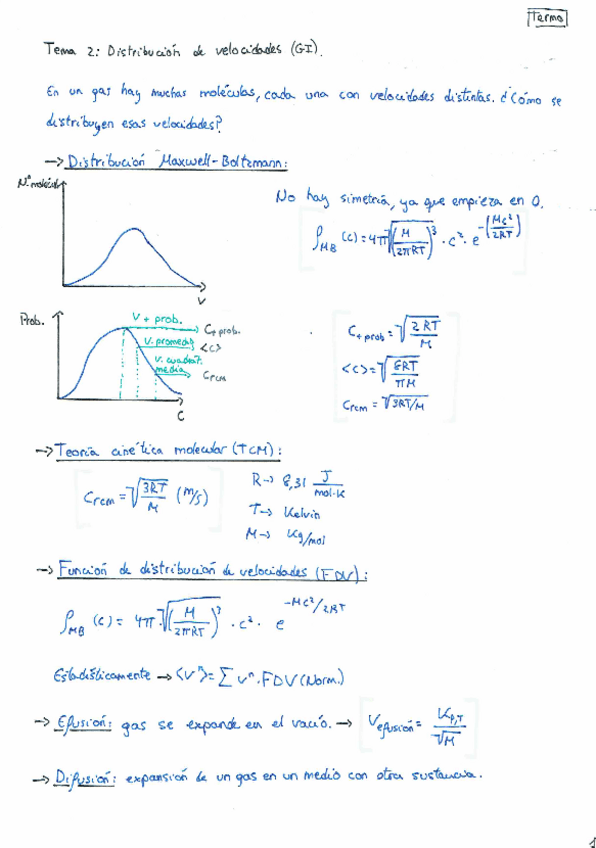 Termo
Tema 2: Distribución de velocidades (GI).
En un gas hay muchas moléculas, cada una con velocidades distintas. ¿Cómo se
distribuyen esas velocidades?
→ Distribución Maxwell-Boltzmann:
Nº molécul
V
No hay simetría, ya que empieza en 0.
ρ_MB (c) = 4π √(M/2πRT)³ · c² · e^-(Mc²/2RT)
Prob.
V + prob.
C+ prob.
V. promedio
<c>
V. cuadrat.
media
Crcm
C
C+ prob = √(2RT/M)
<c> = √(8RT/πM)
Crcm = √3RT/M
→ Teoría cinética molecular (TCM):
Crcm = √(3RT/M) (m/s)
R → 8,31 J/mol·K
T → Kelvin
M → Kg/mol
→ Función de distribución de velocidades (FDV):
ρ_MB (c) = 4π · √(M/2πRT)³ · c² · e^-Mc²/2RT
Estadísticamente → <Vⁿ> = Σ vⁿ. FDV (Norm.)
→ Efusión: gas se expande en el vacío. → Vefusión = K_P,T/√M
→ Difusión: expansión de un gas en un medio con otra sustancia.
1